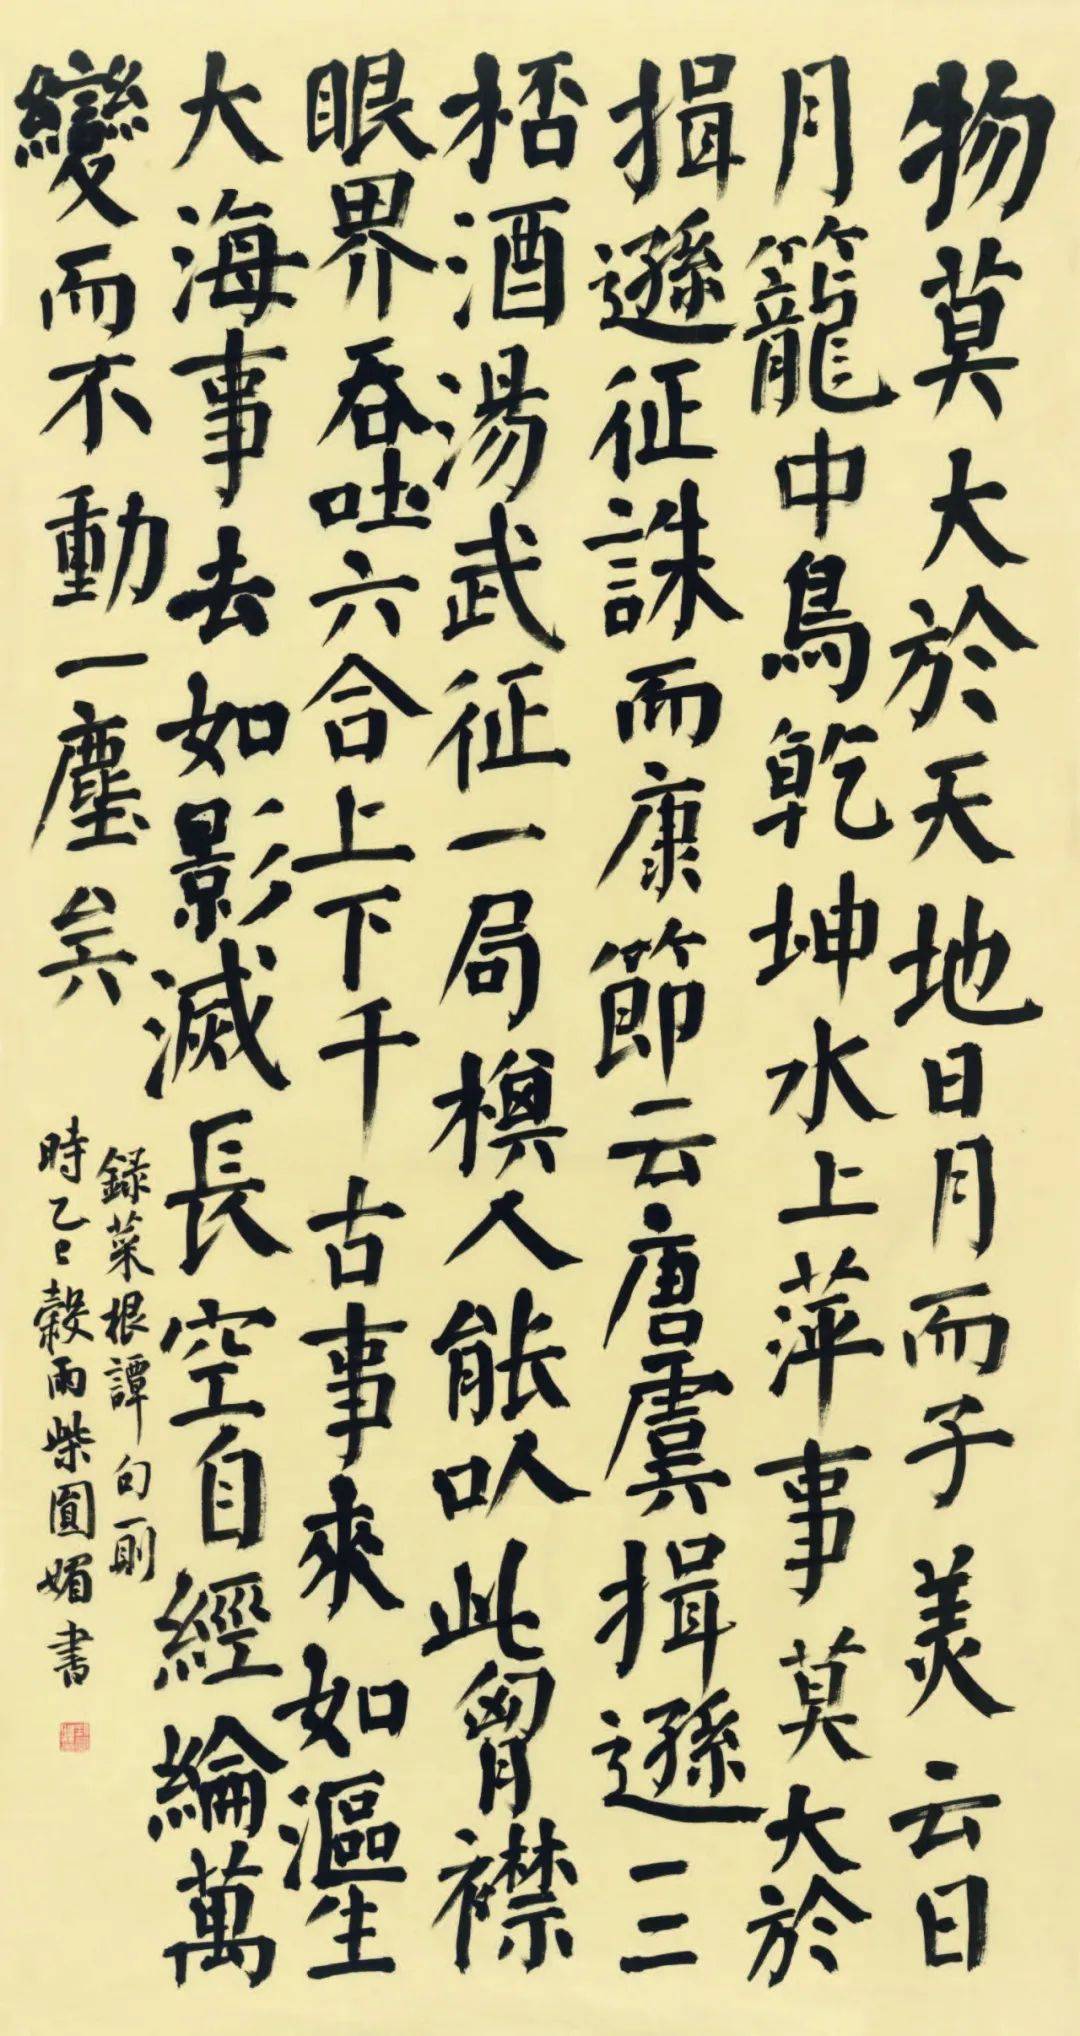 物莫大於天地日月而子美云日
月籠中鳥乾坤水上萍事莫大於
揖遜征誅而康節云唐虞揖遜三
桮酒湯武征一局棋人能以此胷襟
眼界吞吐六合上下千古事來如漚生
大海事去如影滅長空自經綸萬
變而不動一塵矣
録菜根譚句一則
時乙巳穀雨柴圓媚書